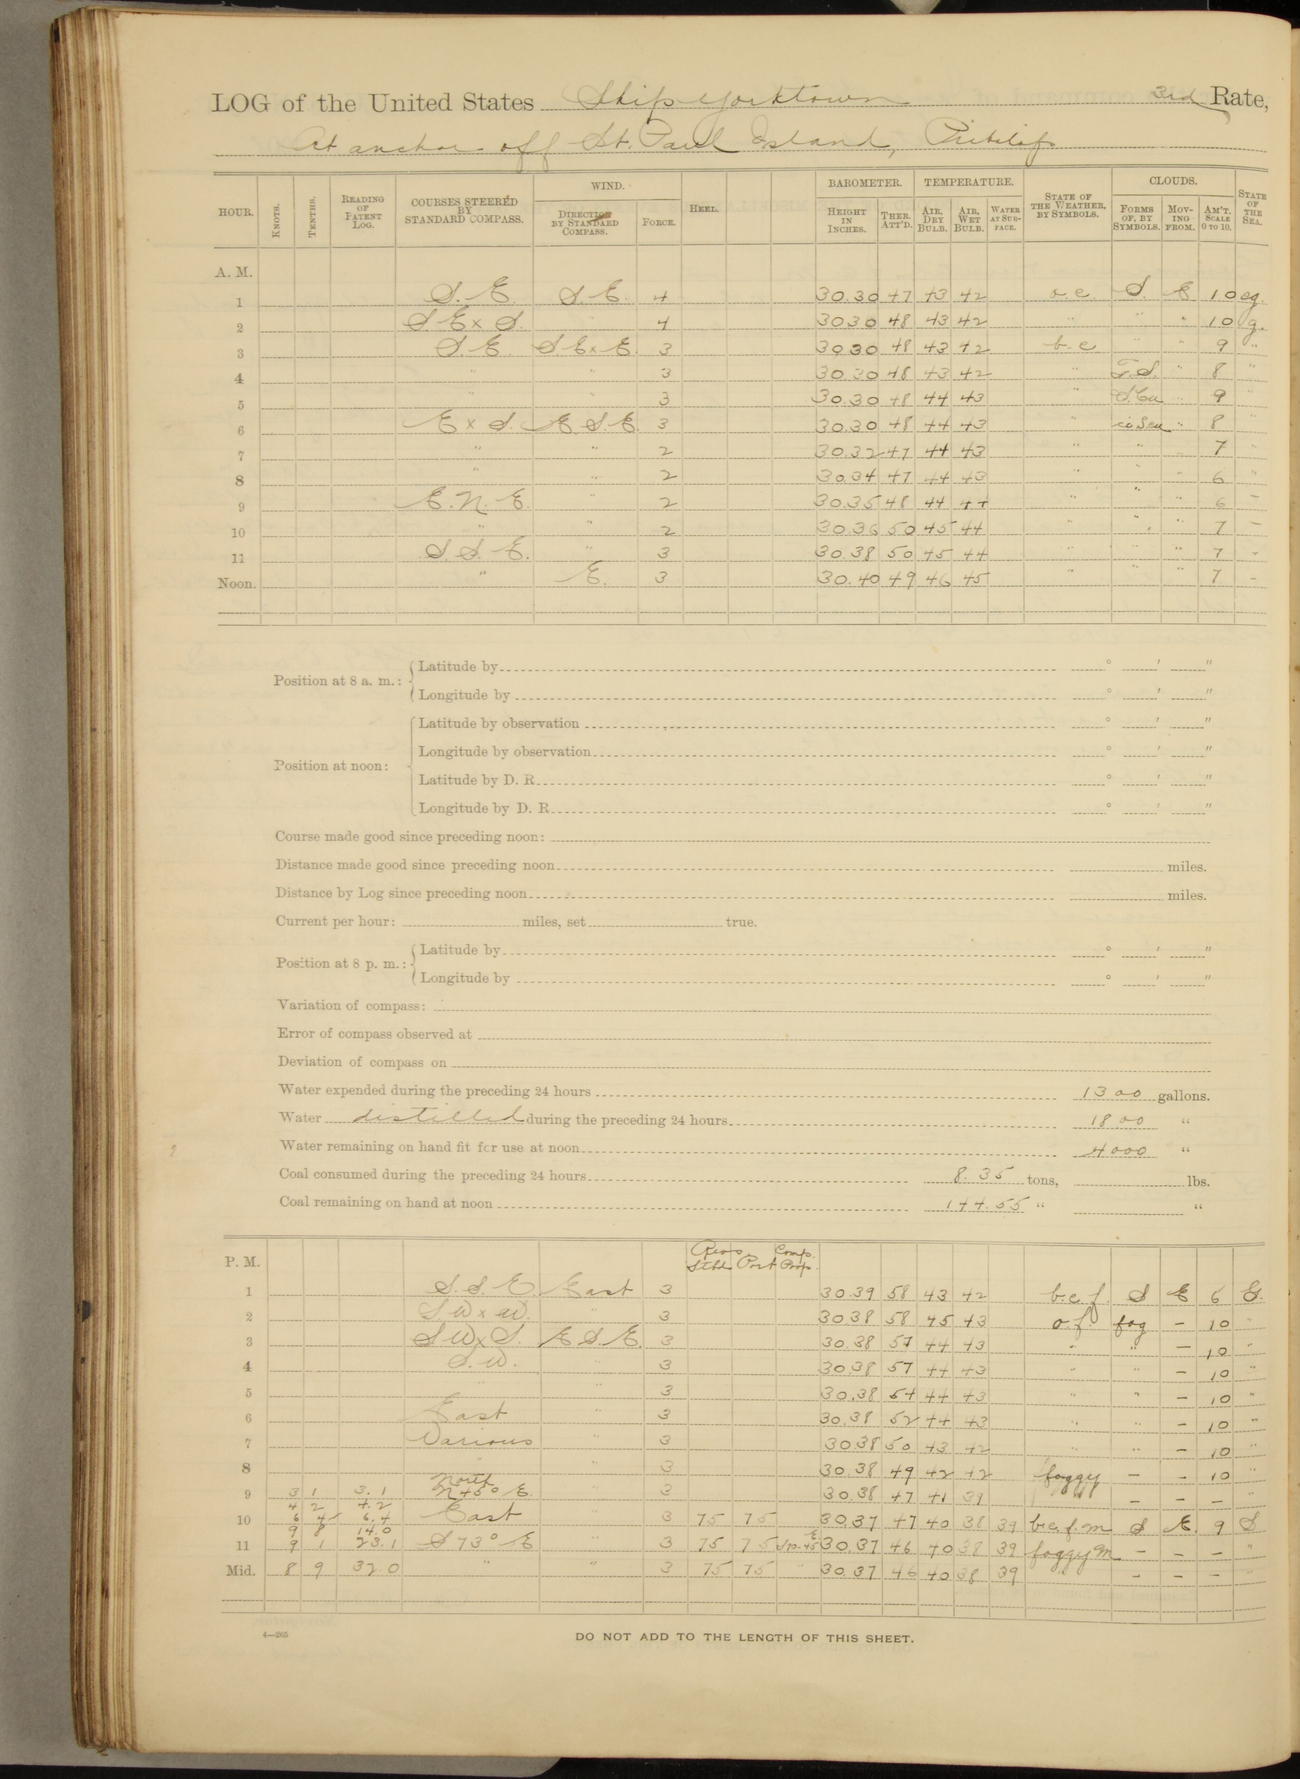 LOG of the United States Ship Yorktown 3rd Rate,
At anchor off St. Paul Island, Pribilof
HOUR. KNOTS. TENTHS. READING OF PATENT LOG. COURSES STEERED BY STANDARD COMPASS. WIND. DIRECTION BY STANDARD COMPASS. FORCE. HEEL. BAROMETER. HEIGHT IN INCHES. THER. ATT'D. TEMPERATURE. AIR, DRY BULB. AIR, WET BULB. WATER AT SURFACE. STATE OF THE WEATHER, BY SYMBOLS. CLOUDS. FORMS OF, BY SYMBOLS. MOVING FROM. AM'T. SCALE 0 TO 10. STATE OF THE SEA.
A. M.
1 S. E. S. E. 4 30.30 47 43 42 o. c. S. E 10
2 S E x S. " 4 30 30 48 43 42 " " " 10 g.
3 S. E. S E x E. 3 30 30 48 43 42 b. c " " 9 "
4 " " 3 30.30 48 43 42 " " 8 "
5 " " 3 30.30 48 44 43 " S.Cu " 9 "
6 E x S. E. S. E. 3 30.30 48 44 43 " " 8 "
7 " " 2 30.32 47 44 43 " " " 7 "
8 " " 2 30.34 47 44 43 " " " 6 "
9 E. N. E. " 2 30.35 48 44 44 " " " 6 "
10 " " 2 30.36 50 45 44 " " " 7 "
11 S. S. E. " 3 30.38 50 45 44 " " " 7 "
Noon. " E. 3 30.40 49 46 45 " " " 7 "
Position at 8 a. m.: Latitude by ° ' "
Longitude by ° ' "
Position at noon: Latitude by observation ° ' "
Longitude by observation ° ' "
Latitude by D. R. ° ' "
Longitude by D. R. ° ' "
Course made good since preceding noon:
Distance made good since preceding noon miles.
Distance by Log since preceding noon miles.
Current per hour: miles, set true.
Position at 8 p. m.: Latitude by ° ' "
Longitude by ° ' "
Variation of compass:
Error of compass observed at
Deviation of compass on
Water expended during the preceding 24 hours 1300 gallons.
Water distilled during the preceding 24 hours 1800 "
Water remaining on hand fit for use at noon 4000 "
Coal consumed during the preceding 24 hours 8.35 tons, lbs.
Coal remaining on hand at noon 144.55 " "
P. M. Revs Stbd Port Comp. Prop.
1 S. S. E East 3 30.39 58 43 42 b.c.f. S E 6 G.
2 S W x W. " 3 30 38 58 45 43 o.f fog - 10 "
3 S W x S. E. S. E. 3 30.38 57 44 43 " " - 10 "
4 S. W. " 3 30.38 57 44 43 " " - 10 "
5 " " 3 30.38 54 44 43 " " - 10 "
6 East " 3 30.38 52 44 43 " " - 10 "
7 Various " 3 30 38 50 43 42 " " - 10 "
8 " 3 30.38 49 42 42 foggy - - 10 "
North
9 3 1 3. 1 N 45° E. " 3 30.38 47 41 39 " - - - "
4 2 4.2
10 6 4 6.4 East " 3 75 75 30.37 47 40 38 39 b.c.f.m S E. 9 S
9 8 14.0
11 9 1 23.1 S 73° E " 3 75 75 30.37 46 40 38 39 foggy m - - - "
Mid. 8 9 32 0 " " 3 75 75 " 30.37 46 40 38 39 - - - "
4—265
DO NOT ADD TO THE LENGTH OF THIS SHEET.